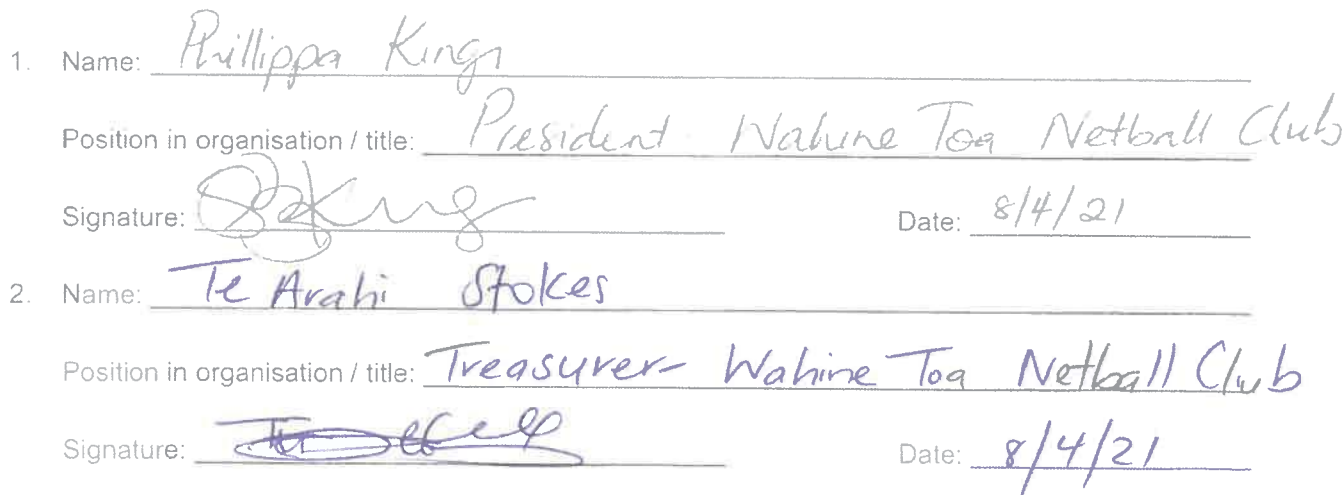 1. Name: Phillippa King
Position in organisation / title: President Wahine Toa Netball Club
Signature: Date: 8/4/21
2. Name: Te Arahi Stokes
Position in organisation / title: Treasurer- Wahine Toa Netball Club
Signature: Date: 8/4/21